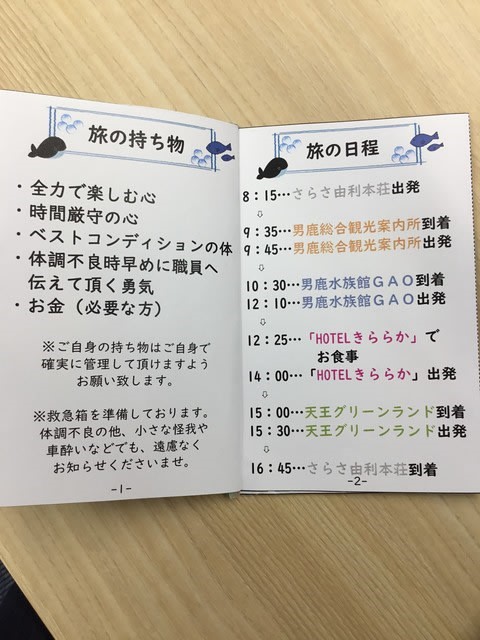 旅の持ち物
・全力で楽しむ心
・時間厳守の心
・ベストコンディションの体
・体調不良時早めに職員へ
伝えて頂く勇気
・お金（必要な方）
※ご自身の持ち物はご自身で
確実に管理して頂けますよう
お願い致します。
※救急箱を準備しております。
体調不良の他、小さな怪我や
車酔いなどでも、遠慮なく
お知らせくださいませ。
-1-
旅の日程
8：15…さらさ由利本荘出発
⇩
9：35…男鹿総合観光案内所到着
9：45…男鹿総合観光案内所出発
⇩
10：30…男鹿水族館ＧＡＯ到着
12：10…男鹿水族館ＧＡＯ出発
⇩
12：25…「HOTELきららか」で
お食事
14：00…「HOTELきららか」出発
⇩
15：00…天王グリーンランド到着
15：30…天王グリーンランド出発
⇩
16：45…さらさ由利本荘到着
-2-